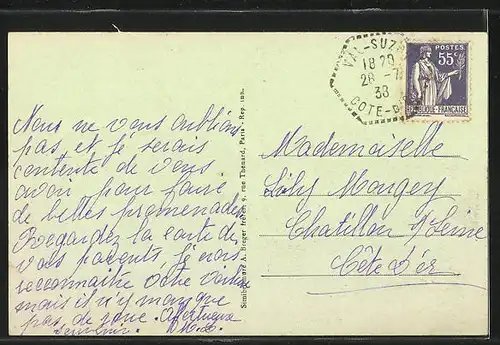 Nous ne vous oublions
pas, et je serais
contente de vous
avoir pour faire
de belles promenades
Regardez la carte de
vos parents, je crois
reconnaître votre
mais il n'y manque
pas de roue. Affectueux
souvenir.
Simili-Bromure A. Breger frères 9, rue Thénard, Paris - Rep. int.
VAL-SUZ
18 20
28 -7
38
COTE-D
POSTES
55c
REPUBLIQUE FRANÇAISE
Mademoiselle
Lily Mongey
Chatillon s/ Seine
Côte d'Or